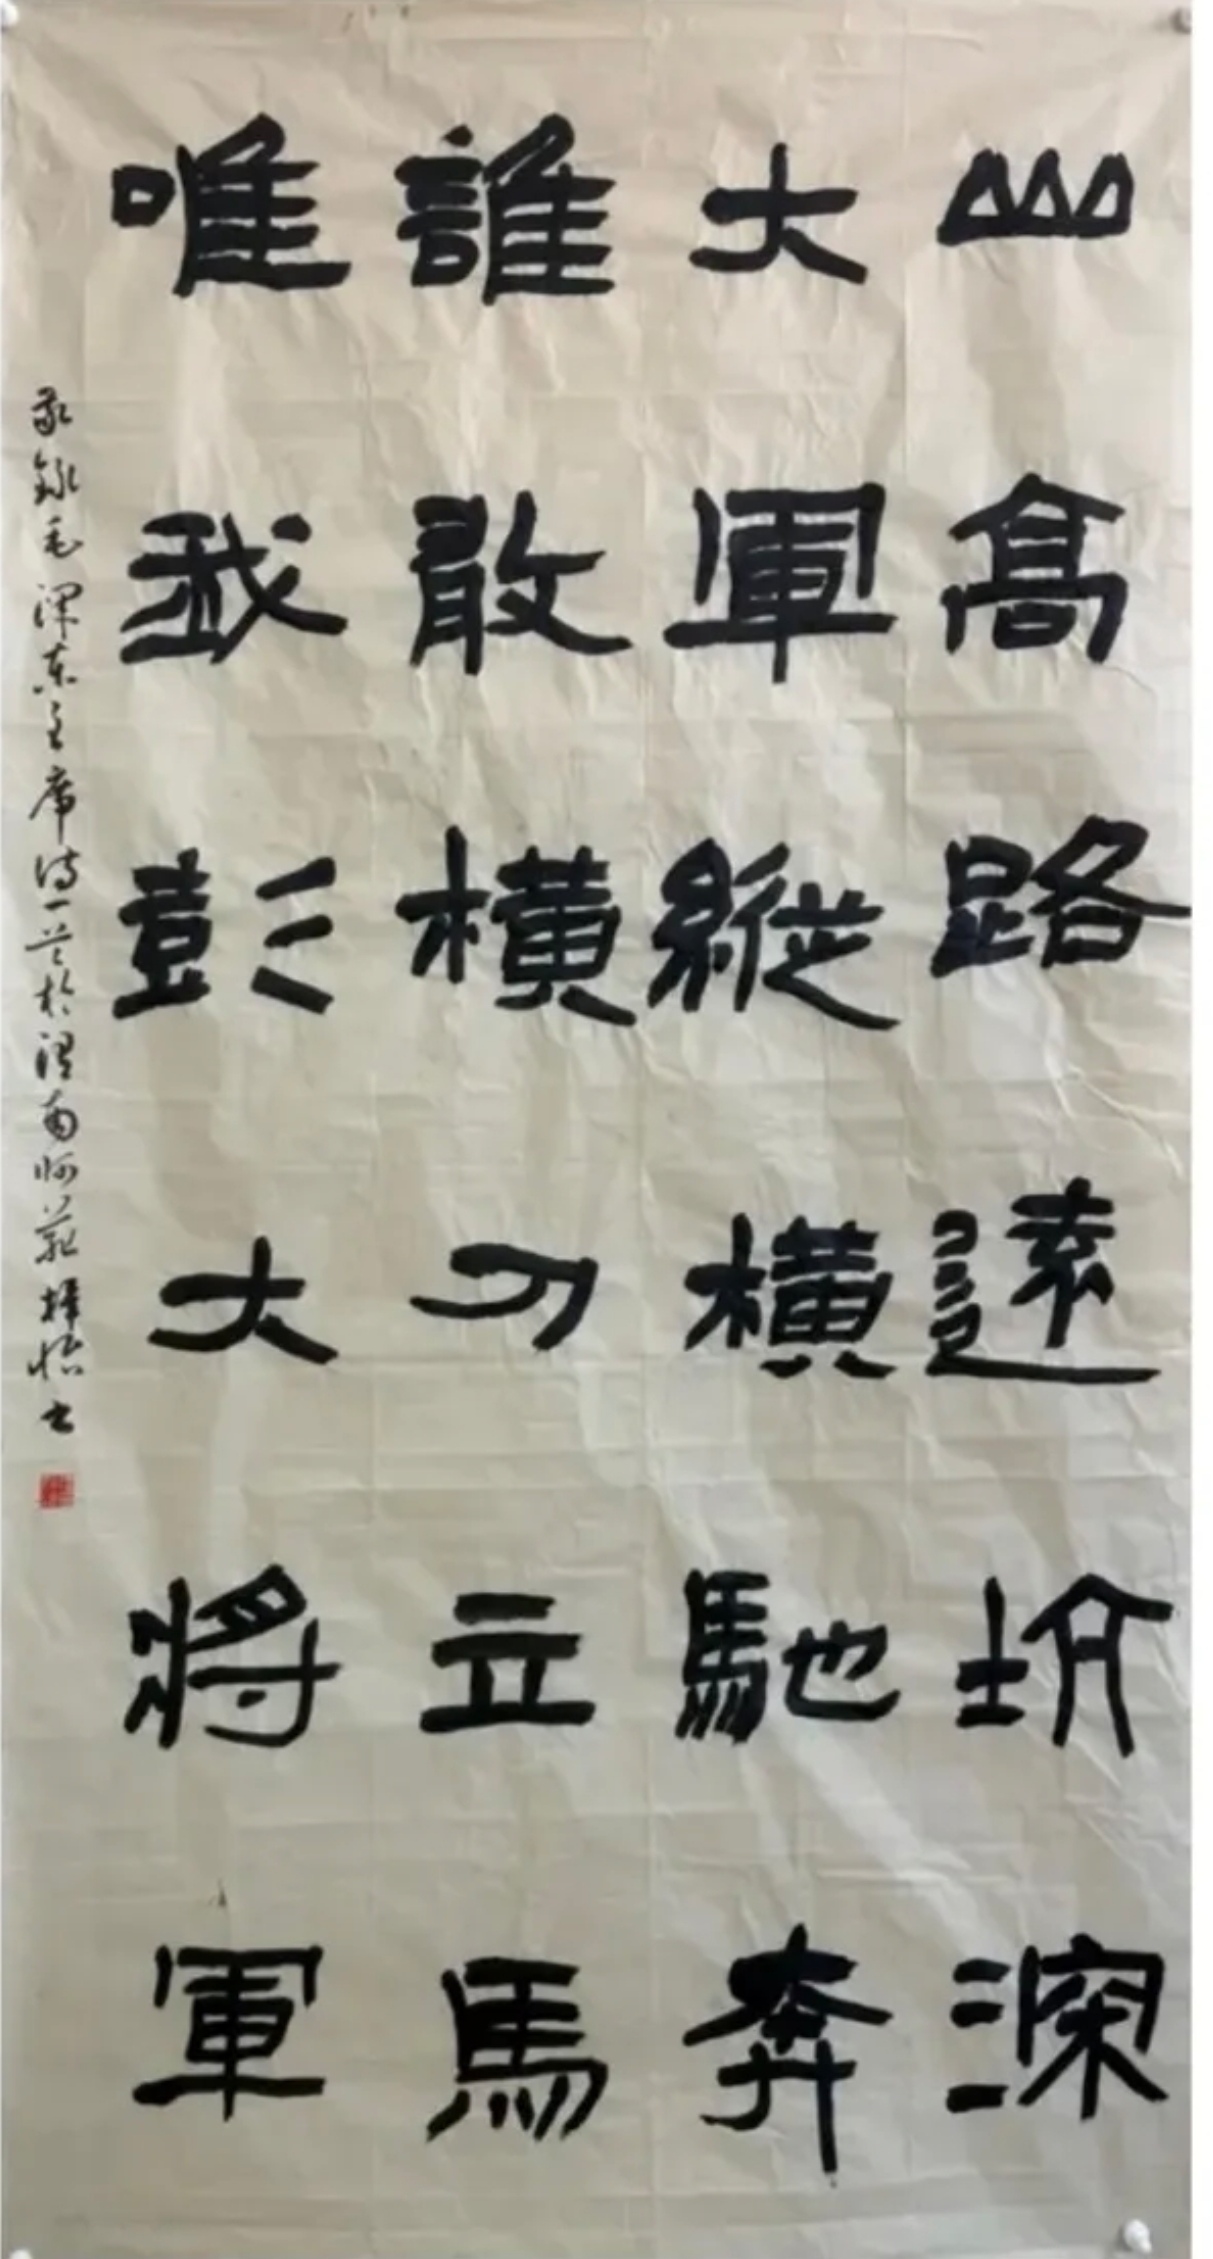 山高路遠坑深
大軍縱橫馳奔
誰敢橫刀立馬
唯我彭大將軍
敬錄毛澤東主席詩一首於渭南
書